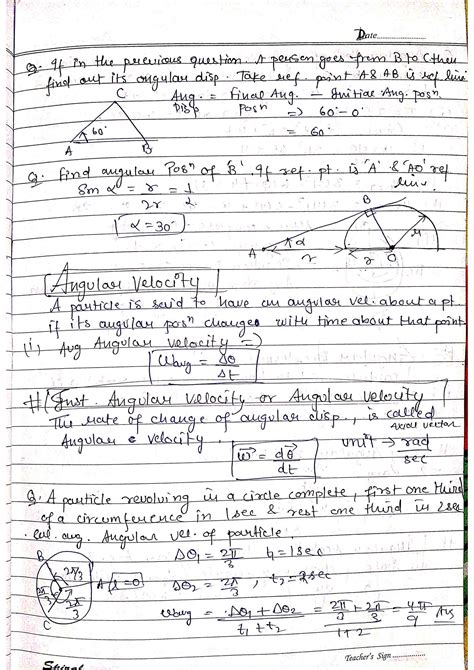 Date..............
Q. If in the previous question. A person goes from B to C then
find out its angular disp. Take ref. point A & AB is ref line
C
Ang. Disp = Final Ang. Posⁿ - Initial Ang. posⁿ
=> 60° - 0°
= 60°
60°
A B
Q. Find angular Posⁿ of 'B'. If ref. pt. is 'A' & 'AO' ref line.
Sin α = r/2r = 1/2
α = 30°
B
A α r r O r
Angular Velocity
A particle is said to have an angular vel. about a pt.
if its angular posⁿ changes with time about that point
(i) Avg Angular velocity =>
ωavg = Δθ/Δt
# Inst. Angular velocity or Angular velocity
The rate of change of angular disp., is called
Angular velocity.
Axial vector
unit → rad/sec
ω⃗ = dθ⃗/dt
Q. A particle revolving in a circle complete, first one third
of a circumference in 1 sec & rest one third in 2 sec
cal. avg. Angular vel. of particle.
Δθ₁ = 2π/3 t₁ = 1 sec
B 2π/3 A (t=0)
2π/3 2π/3
C
Δθ₂ = 2π/3, t₂ = 2 sec
ωavg = Δθ₁ + Δθ₂ / t₁ + t₂ = 2π/3 + 2π/3 / 1+2 = 4π/9 Ans
Spiral
Teacher's Sign ..............